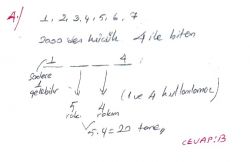 A)
1, 2, 3, 4, 5, 6, 7
2000 den küçük 4 ile biten
1 4
Sadece
1
gelebilir
5 4 (1 ve 4 kullanılamaz)
rakam
5.4=20 tane,
CEVAP:B